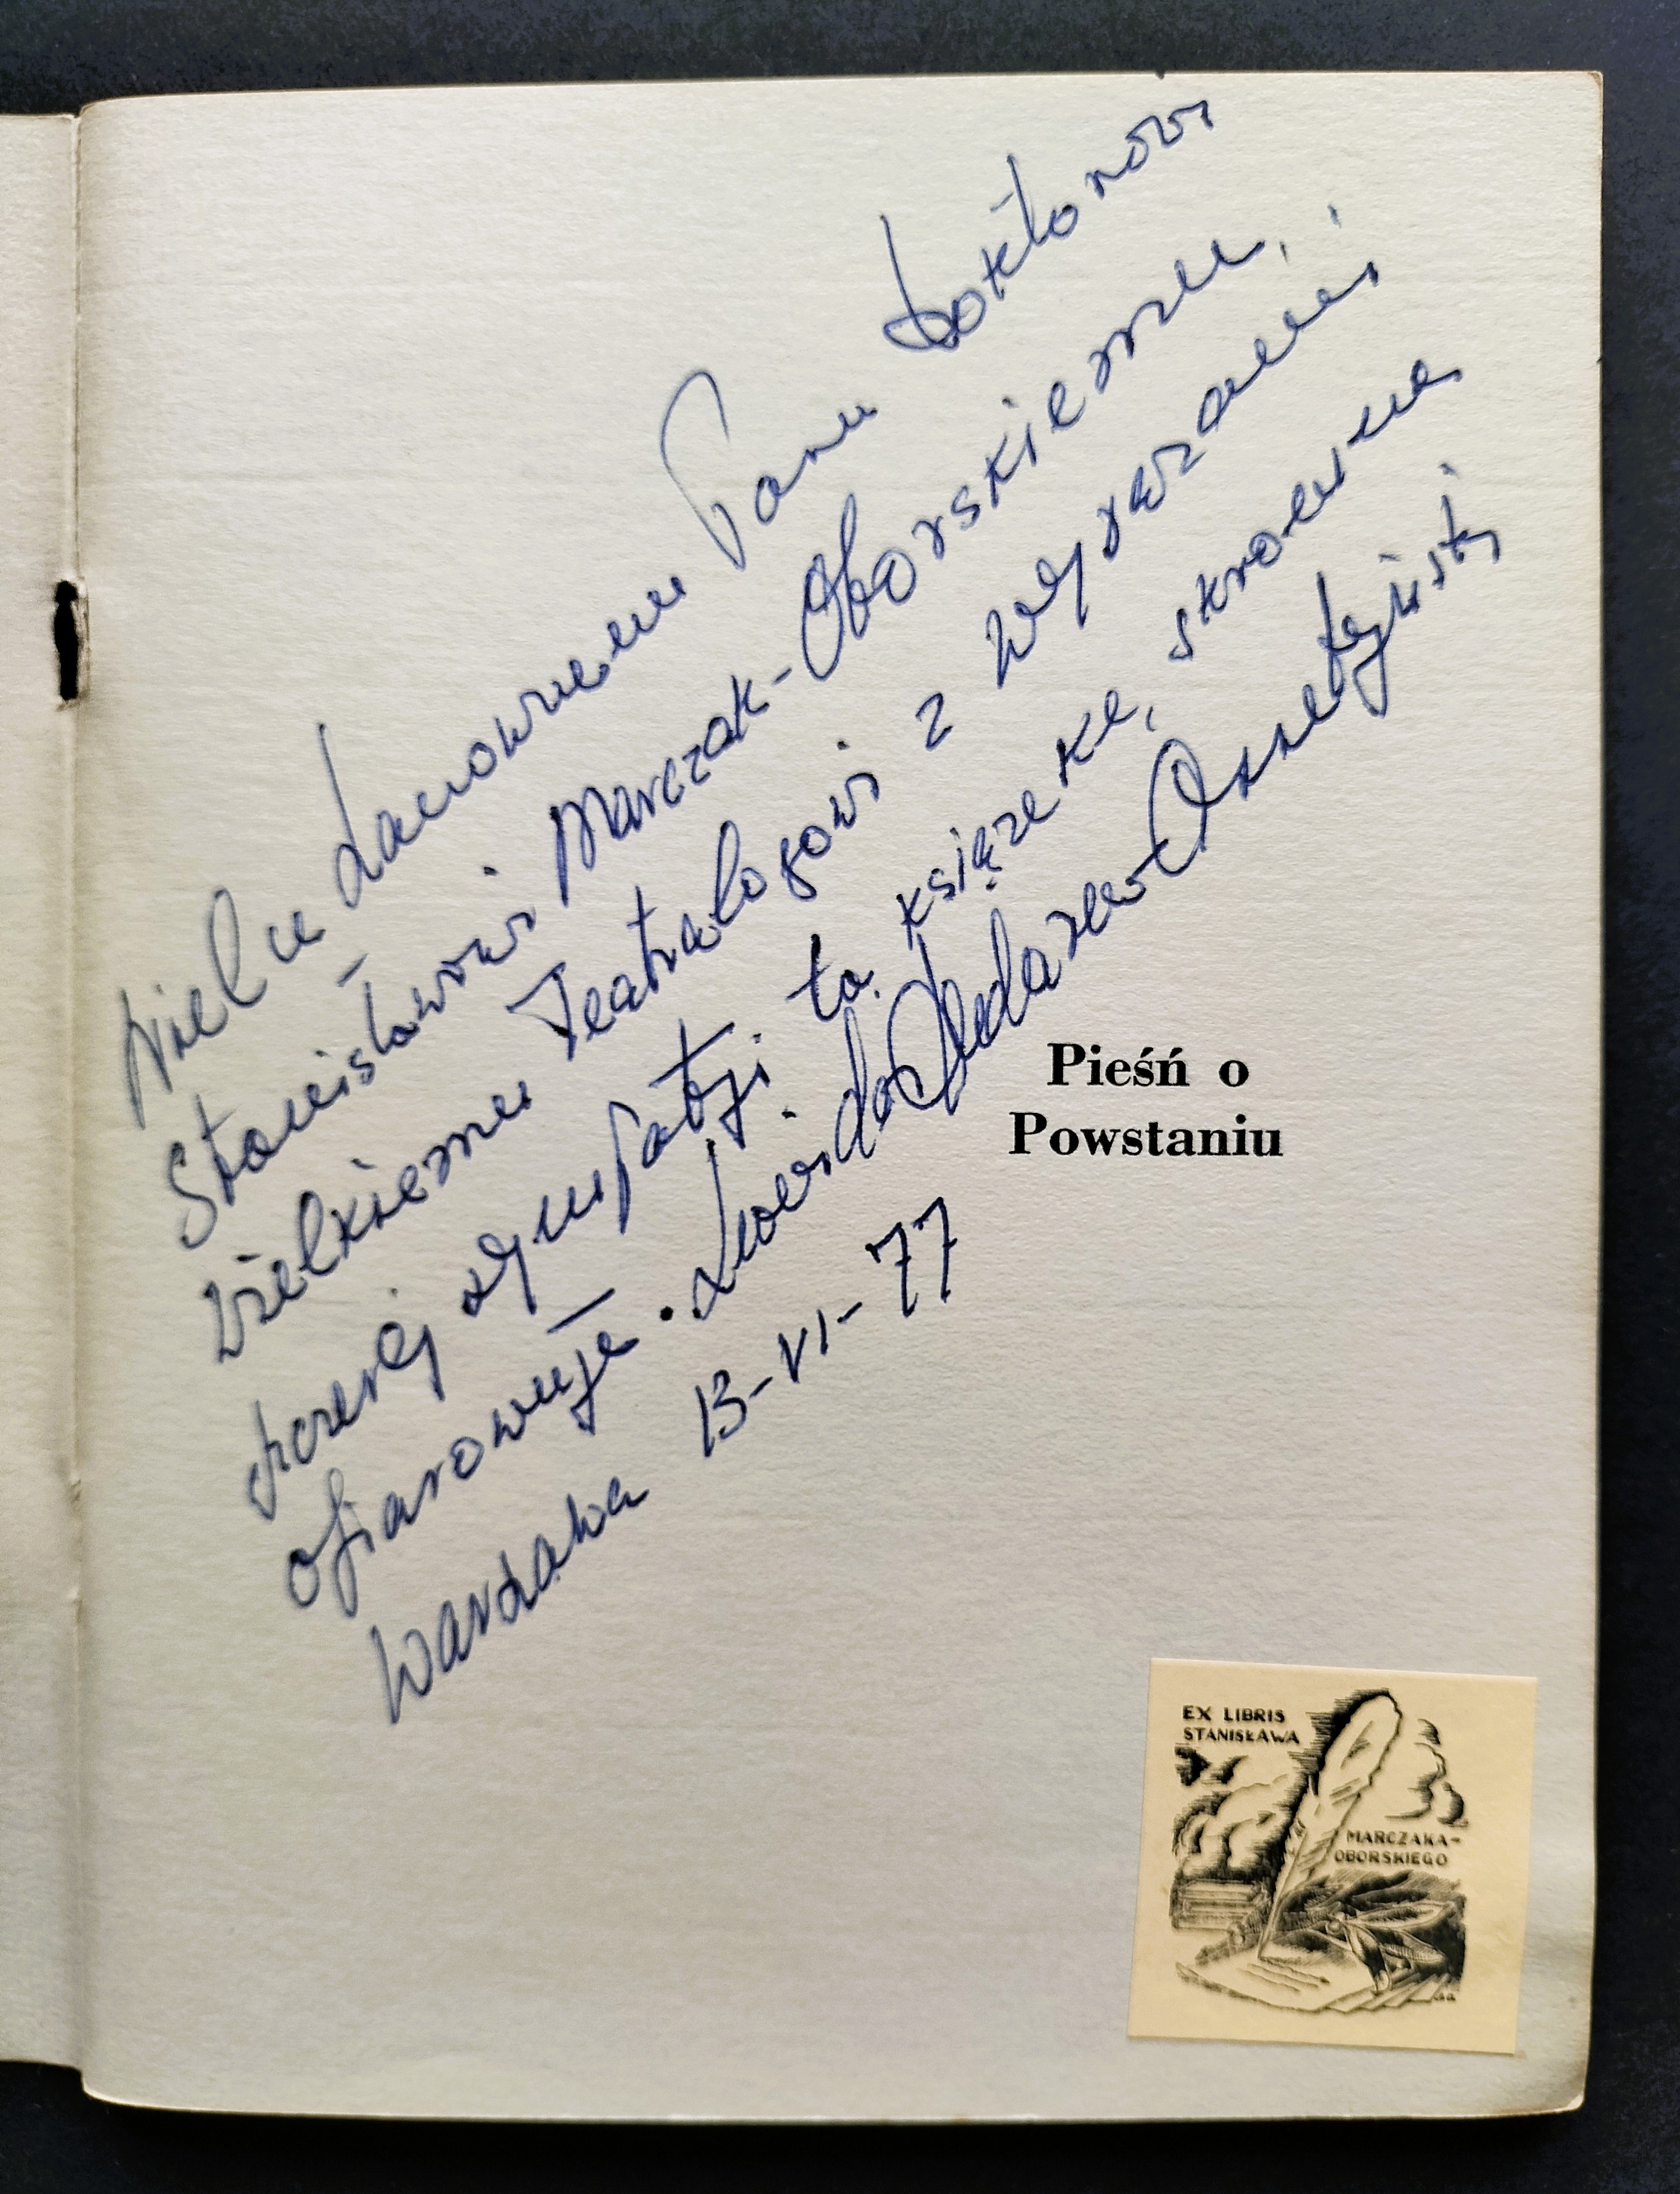 Wielce Szanownemu Panu Doktorowi
Stanisławowi Marczak-Oborskiemu,
wielkiemu Teatrologowi z wyrazami
szczerej sympatji tą książeczkę, skromnie
ofiarowuje.
Warszawa 13-VI-77
Pieśń o
Powstaniu
EX LIBRIS
STANISŁAWA
MARCZAKA-
OBORSKIEGO